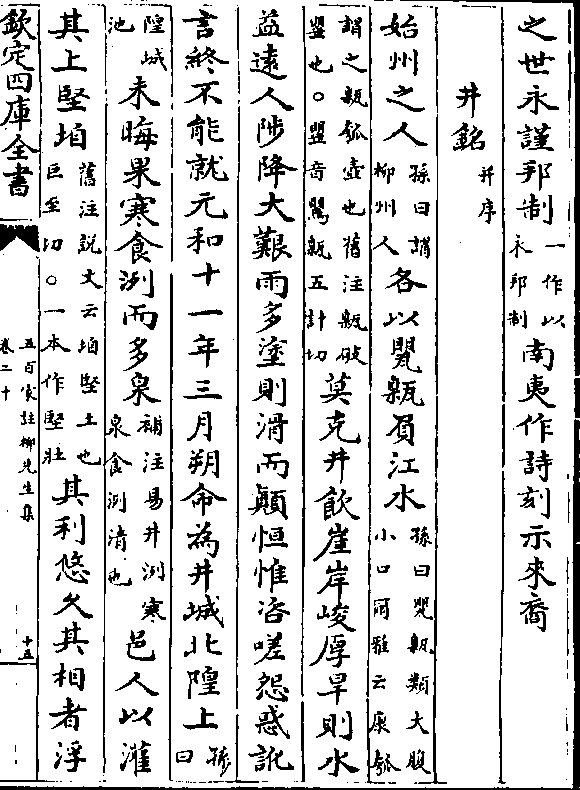 之世永謹邦制一作以永邦制南夷作詩刻示來裔
井銘并序
始州之人孫曰謂柳州人各以甖甈負江水孫曰甖甈類大腹小口爾雅云康瓠
謂之甈瓠壺也舊注甈破甖也○甖音鸎甈五計切莫克井飲崖岸峻厚旱則水
益遠人陟降大艱雨多塗則滑而顛恒惟咨嗟怨惑訛
言終不能就元和十一年三月朔命為井城北隍上孫曰
隍城池未晦果寒食洌而多泉補注易井洌寒泉食洌清也邑人以灌
其上堅垍舊注說文云垍堅土也巨至切○一本作堅壯其利悠久其相者浮
欽定四庫全書
五百家註柳先生集
卷二十
十五